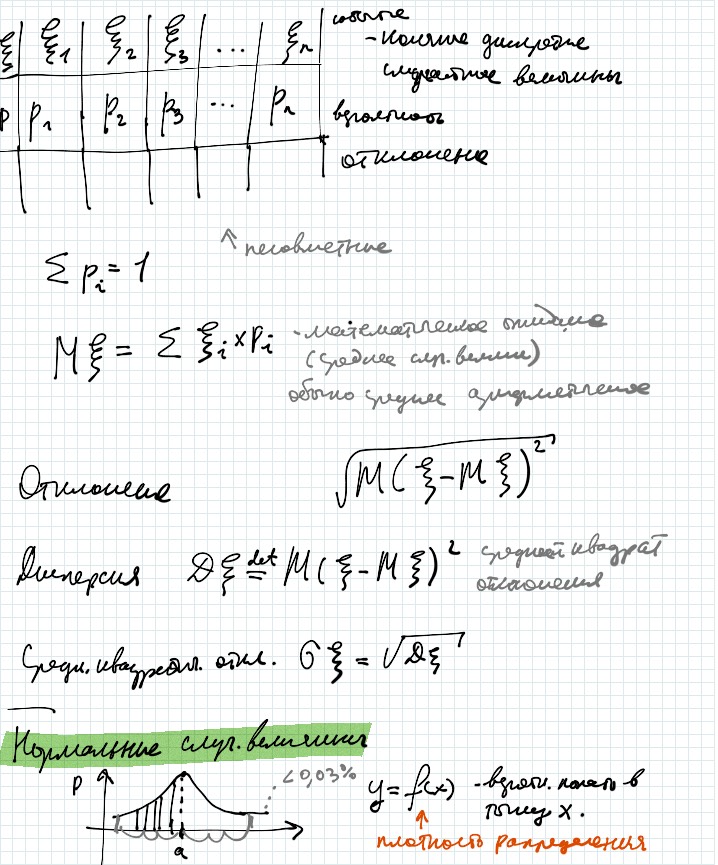 ξ ξ1 ξ2 ξ3 ... ξn событие
- конечные дискретные
случайные величины
P p1 p2 p3 ... pn вероятность
отклонение
↑ несовместные
Σ pi = 1
Mξ = Σ ξi × pi - математическое ожидание
(среднее случ. велич)
обычно среднее арифметическое
Отклонение √M(ξ - Mξ)²
Дисперсия Dξ def= M(ξ - Mξ)² средний квадрат
отклонения
Средн. квадратич. откл. σξ = √Dξ
Нормальные случ. величины
P <0,03% y = f(x) - вероятн. попасть в
точку x.
a
плотность распределения